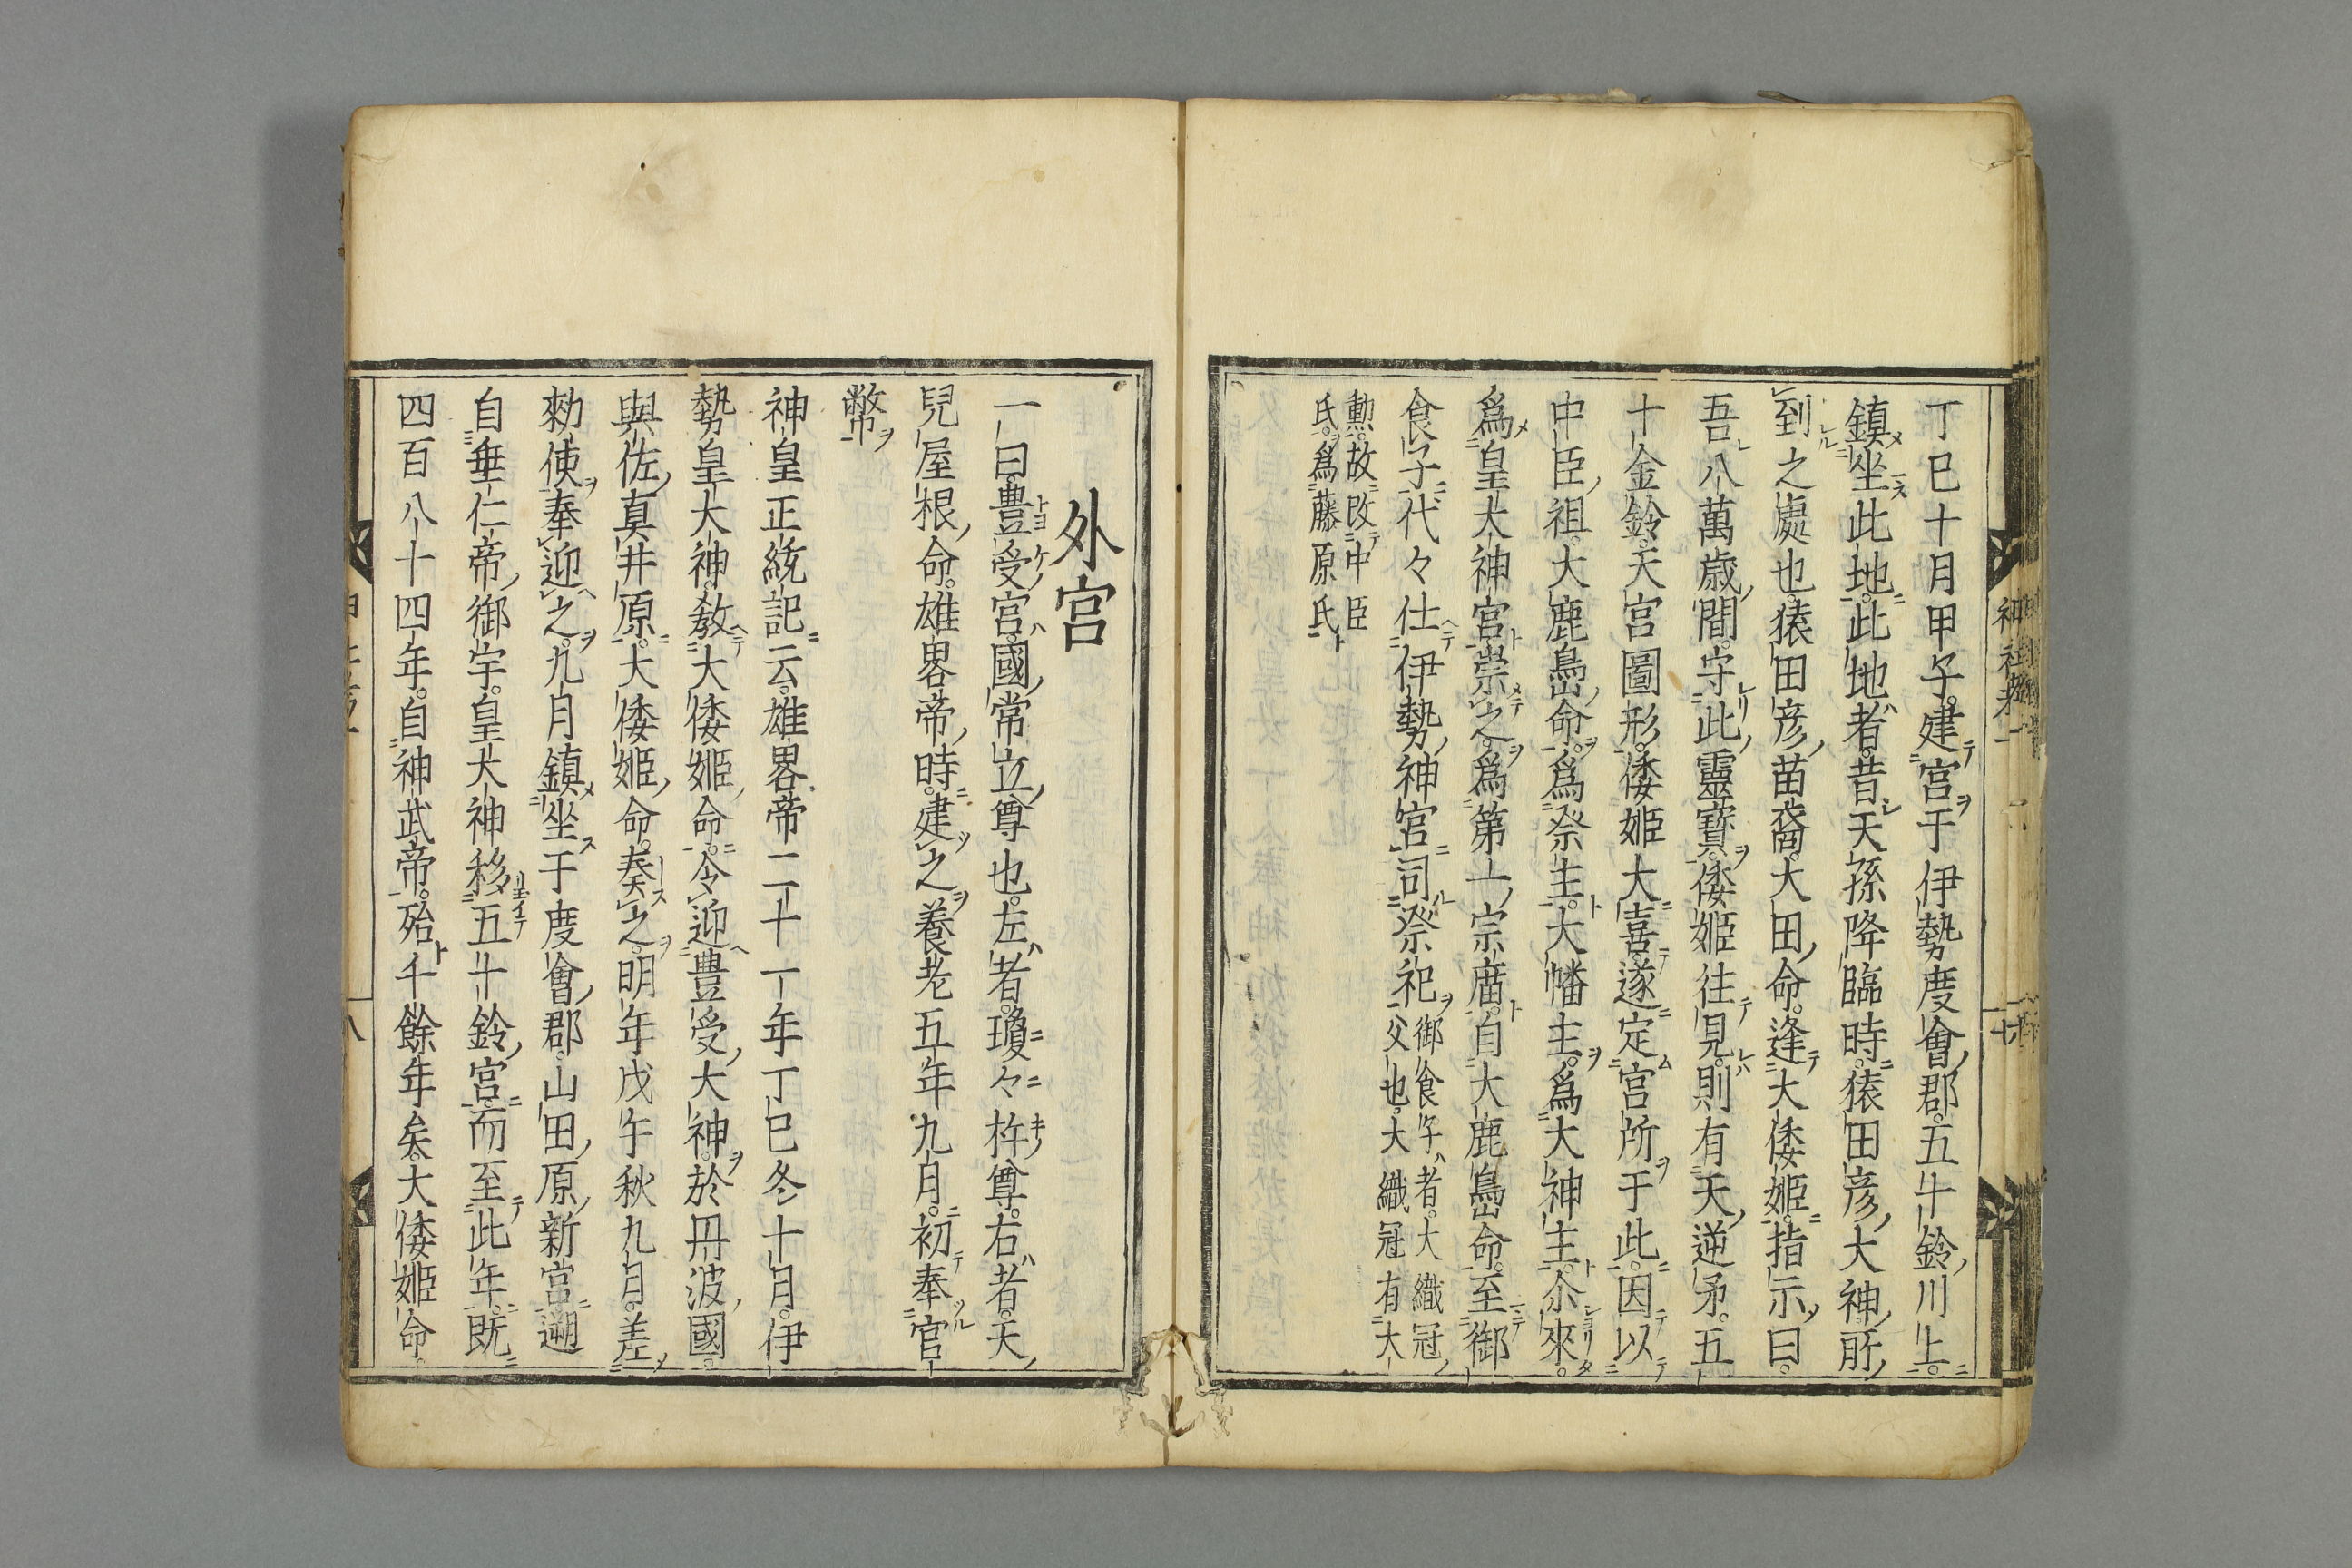 丁巳十月甲子。建宮于伊勢度會郡。五十鈴川上。
鎮坐此地。此地者。昔天孫降臨時。猿田彦大神所
到之處也。猿田彦苗裔。大田命。逢大倭姫。指示曰。
吾八萬歳間。守此靈寶。倭姫往見。則有天逆矛。五
十金鈴。天宮圖形。倭姫大喜。遂定宮所于此。因以
中臣祖。大鹿島命。爲祭主。大幡主。爲大神主。尒來。
爲皇太神宮。崇之。爲第一宗廣。自大鹿島命。至御
食子代々仕伊勢神宮司祭祀御食子者。大織冠
父也。大織冠有大
勳。故改中臣
氏。爲藤原氏
神社考一
外宮
一曰。豊受宮。國常立尊也。左者。瓊々杵尊。右者。天
兒屋根命。雄畧帝時。建之。養老五年九月。初奉官
幣
神皇正統記云。雄畧帝二十一年丁巳冬十月。伊
勢皇大神。教大倭姫命。令迎豊受大神。於丹波國。
與佐真井原。大倭姫命。奏之。明年戊午秋九月。差
勅使奉迎之。九月鎮坐于度會郡。山田原新宮。遡
自垂仁帝御宇。皇大神移五十鈴宮。而至此年。既
四百八十四年。自神武帝。殆千餘年矣。大倭姫命。
八